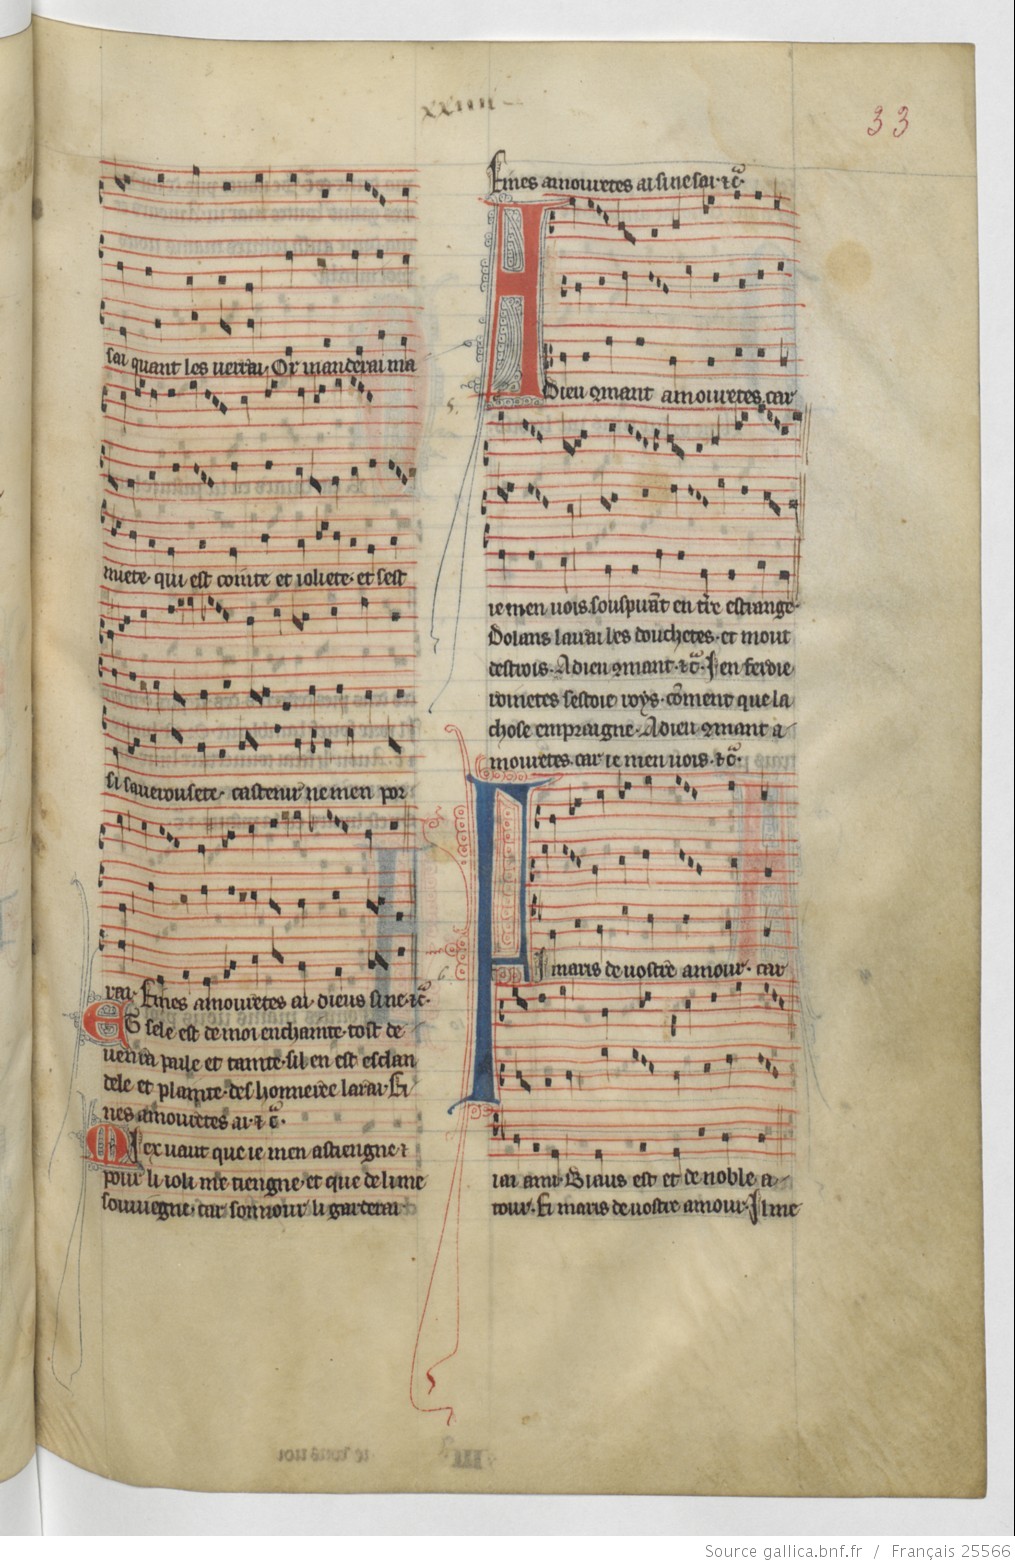 xxiiii
33
sai quant les verrai. Or manderai ma
miete. qui est cointe et ioliete. et sest
si sauerousete. castenir ne men por
rai. Fines amouretes ai dieus si ne. ⁊c̃.
Et sele est de moi enchainte. tost de
uenra pale et tainte. sil en est esclan
dele et plainte. des honneree larai. Fi
nes amouretes ai. ⁊ c̃.
Mex vaut que ie men astiengne ⁊
pour li ioli me tiengne. et que de li me
souuiegne. car sonnour li garderai
Fines amouretes ai si ne sai. ⁊c̃.
A Dieu 9mant amouretes. car
5.
ie men vois. souspirãt en tr̃e estrange.
Dolans lairai les douchetes. et mout
destrois. A dieu 9mant. ⁊c̃. J en feroie
roinetes sestoie roys. cõment que la
chose empraigne. A dieu 9mant a
mouretes. car ie men vois. ⁊c̃.
Fi maris de uostre amour. car
6.
iai ami. Biaus est et de noble a
tour. Fi maris de uostre amour. Il me
ie vous uoi
Source gallica.bnf.fr / Français 25566